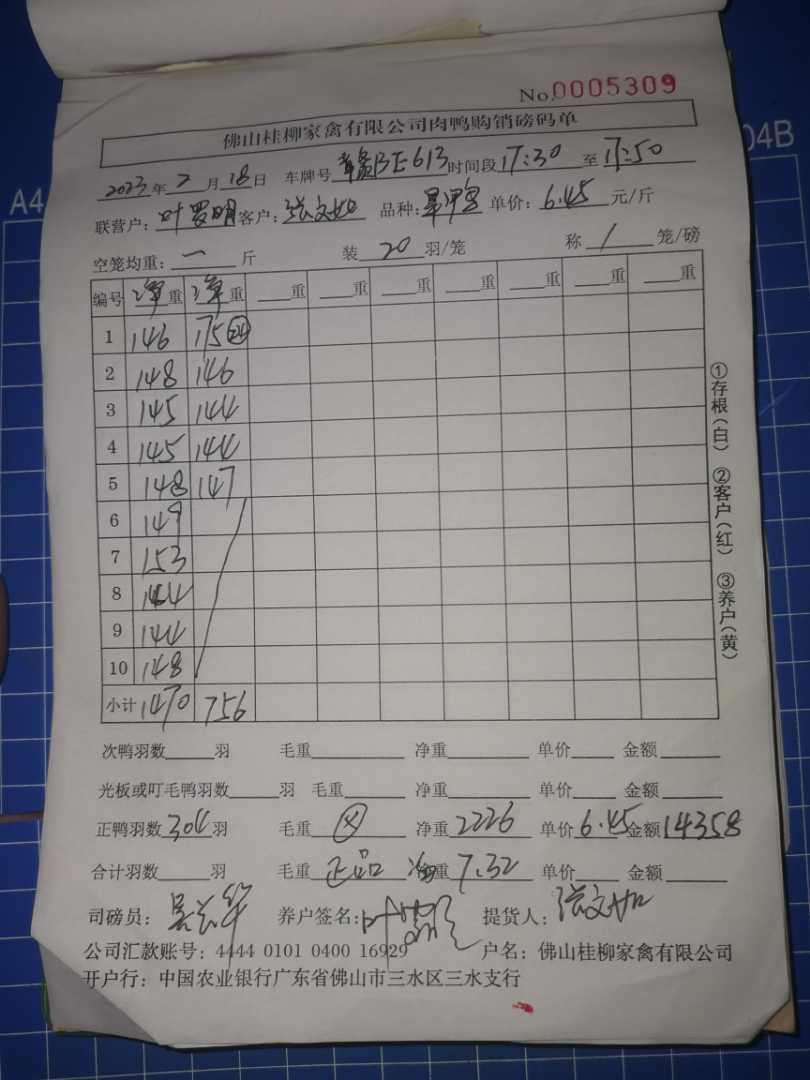 No.0005309
佛山桂柳家禽有限公司肉鸭购销磅码单
2023年2月18日 车牌号 赣BE613 时间段 17:30 至 17:50
联营户：叶罗明 客户：张文如 品种： 单价：6.45 元/斤
空笼均重：一 斤 装 20 羽/笼 称 1 笼/磅
编号 净重 净重 重 重 重 重 重 重 重
1 146 175 24
2 148 146
3 145 144
4 145 144
5 148 147
6 149
7 153
8 144
9 144
10 148
小计 1470 756
①存根（白） ②客户（红） ③养户（黄）
次鸭羽数 羽 毛重 净重 单价 金额
光板或叮毛鸭羽数 羽 毛重 净重 单价 金额
正鸭羽数 304 羽 毛重 净重 2226 单价 6.45 金额 14358
合计羽数 羽 毛重 正品 重 7.32 单价 金额
司磅员： 养户签名： 提货人：张文如
公司汇款账号：4444 0101 0400 16929 户名：佛山桂柳家禽有限公司
开户行：中国农业银行广东省佛山市三水区三水支行
A4
04B